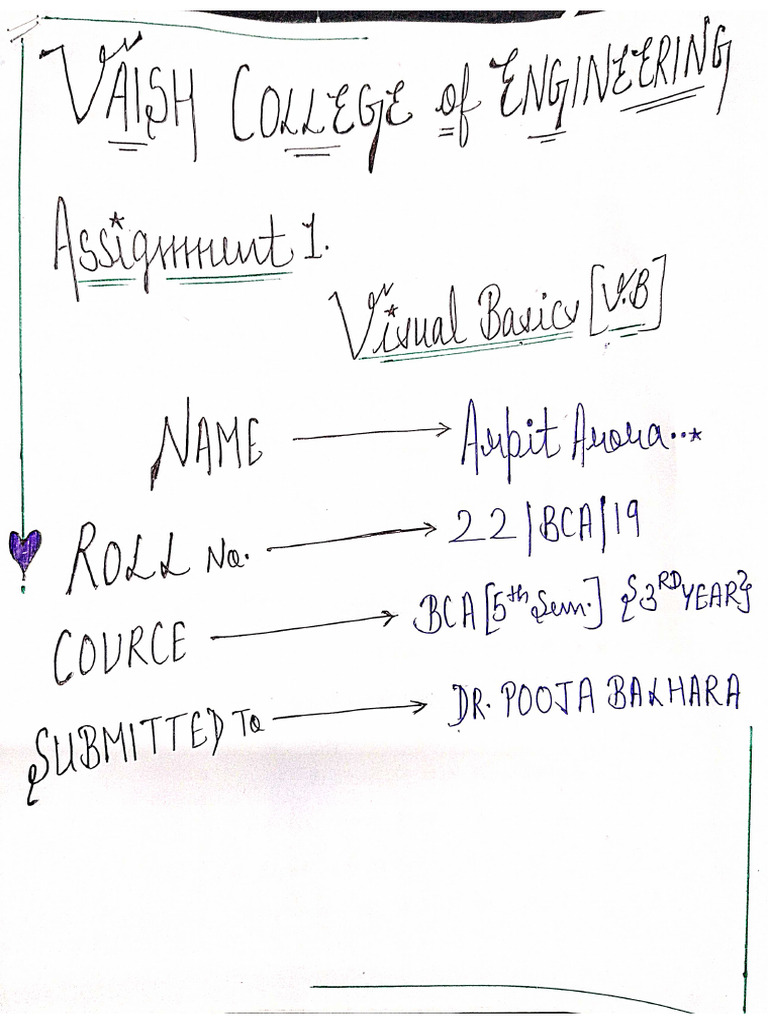 VAISH COLLEGE of ENGINEERING
Assignment 1.
Visual Basics [V.B]
NAME → Arpit Arora..*
ROLL No. → 22/BCA/19
COURCE → BCA [5th Sem.] {3RD YEAR}
SUBMITTED To → DR. POOJA BALHARA